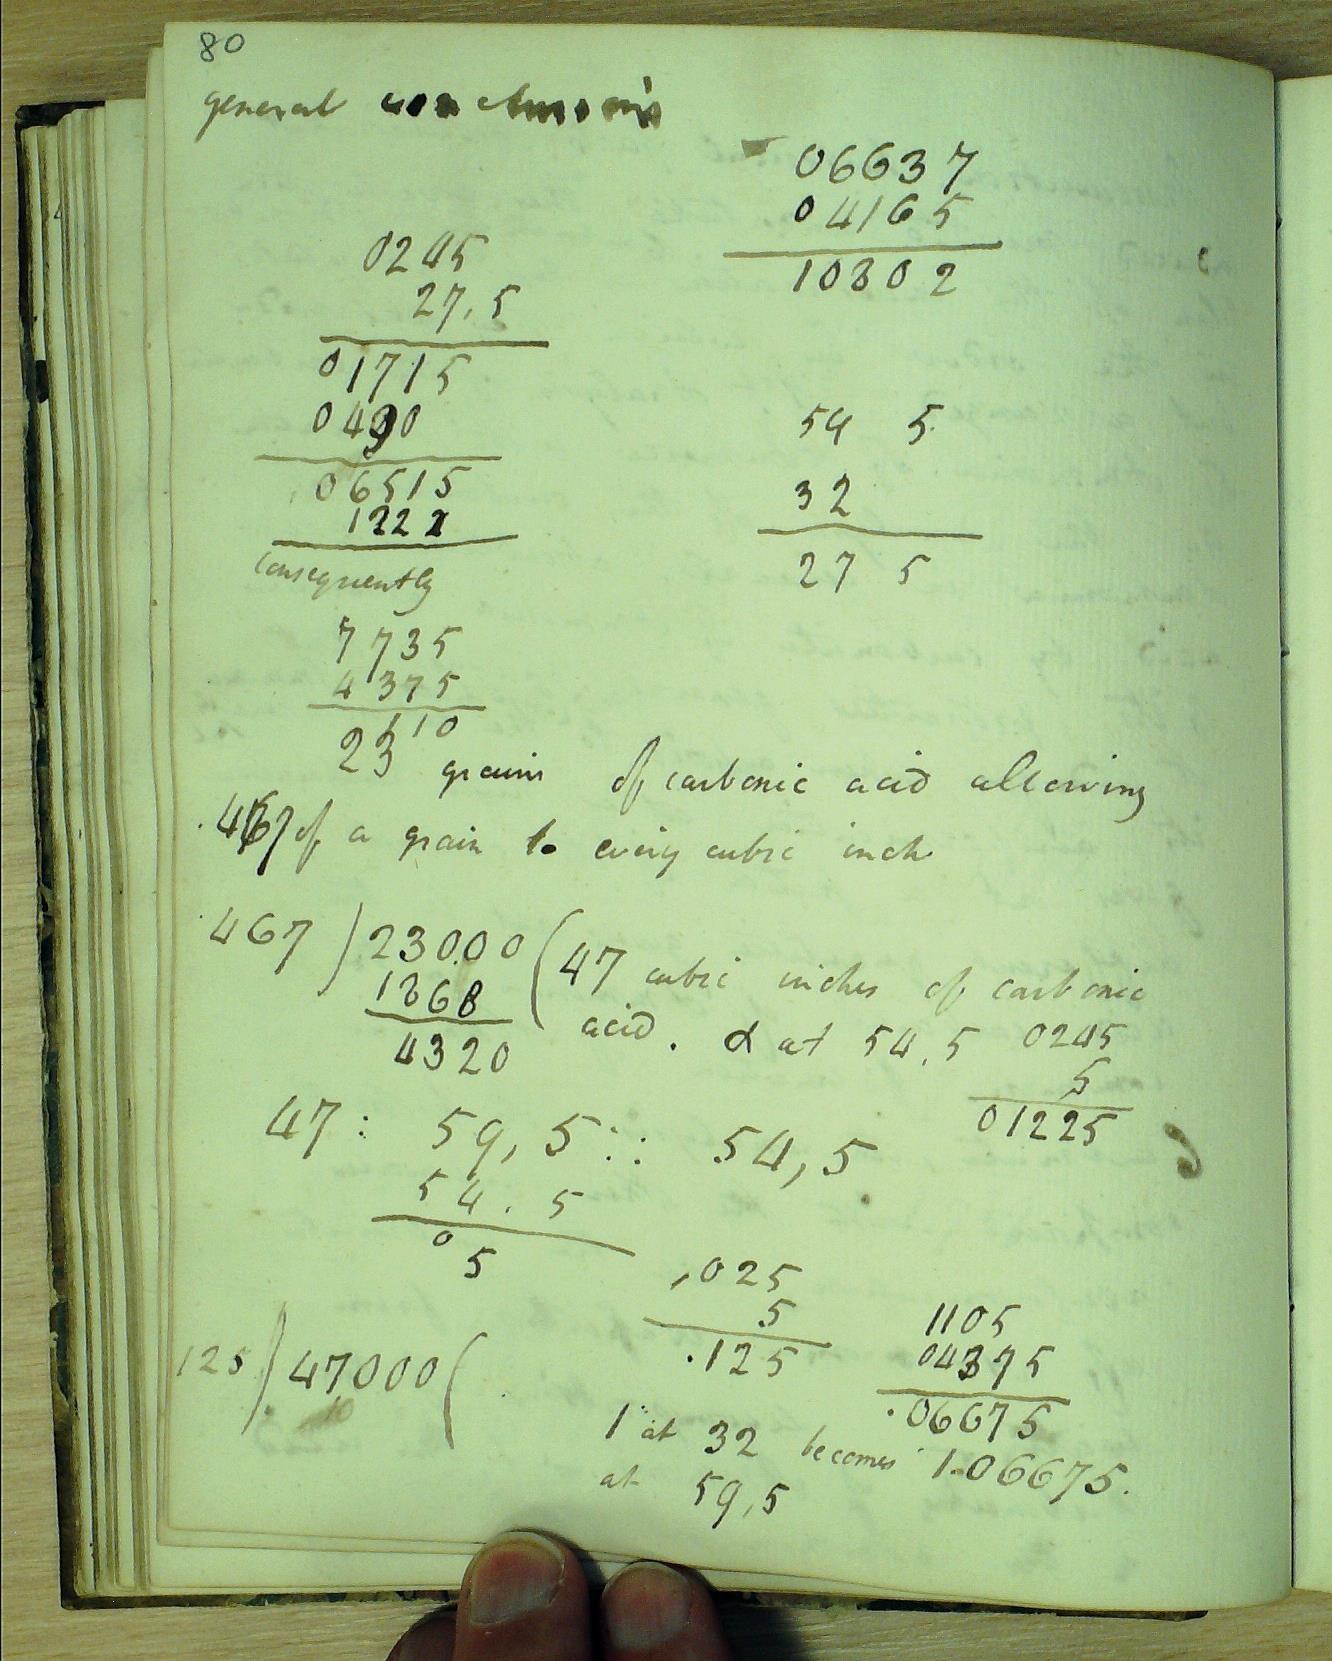 80
general conclusions
06637
04165
10802
0245
27,5
01715
0490
06515
1222
consequently
54 5
32
27 5
7735
4375
23 110
grains of carbonic acid allowing
.467 of a grain to every cubic inch
.467 ) 230.00 ( 47 cubic inches of carbonic
1868
4320
acid. & at 54.5
0245
5
01225
47 : 59,5 :: 54,5
54.5
05
,025
5
.125
1105
04375
.06675
125 ) 47,000 (
1 at 32 becomes 1.06675.
at 59,5